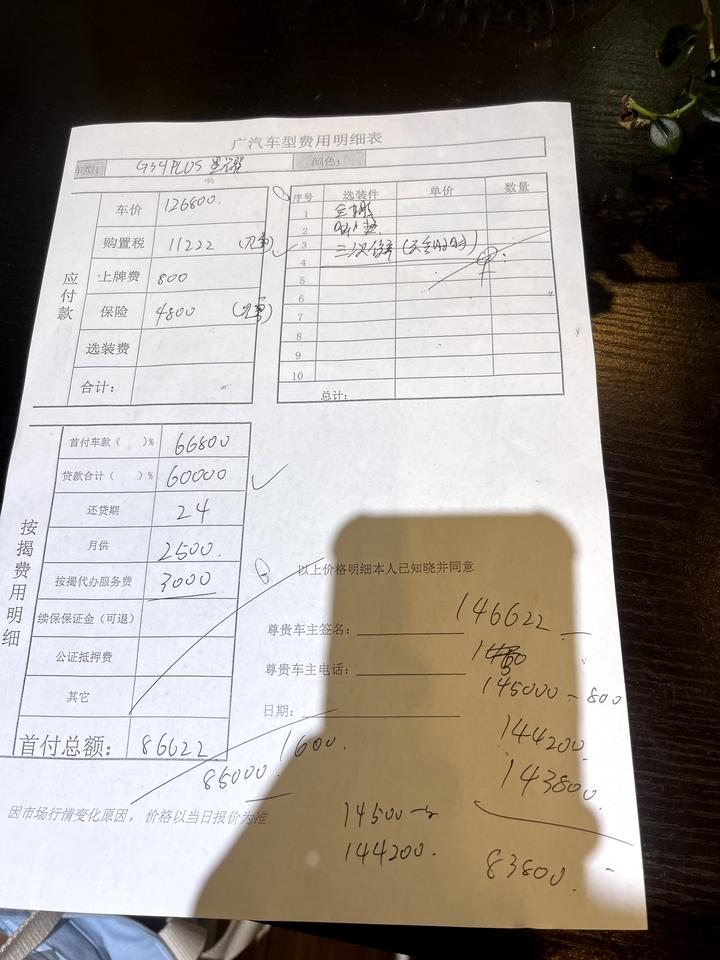 广汽车型费用明细表
车型： GS4PLUS 颜色：
应付款
车价 126800.
购置税 11222
上牌费 800
保险 4800
选装费
合计：
序号 选装件 单价 数量
1 全车膜
2
3 三次保养
4
5
6
7
8
9
10
总计：
按揭费用明细
首付车款（ ）% 66800
贷款合计（ ）% 60000
还贷期 24
月供 2500.
按揭代办服务费 3000
续保保证金（可退）
公证抵押费
其它
首付总额： 86622
以上价格明细本人已知晓并同意
尊贵车主签名：
尊贵车主电话：
日期：
146622
145000-800
144200
143800
1600.
85000
因市场行情变化原因，价格以当日报价为准
14500
144200.
83800.